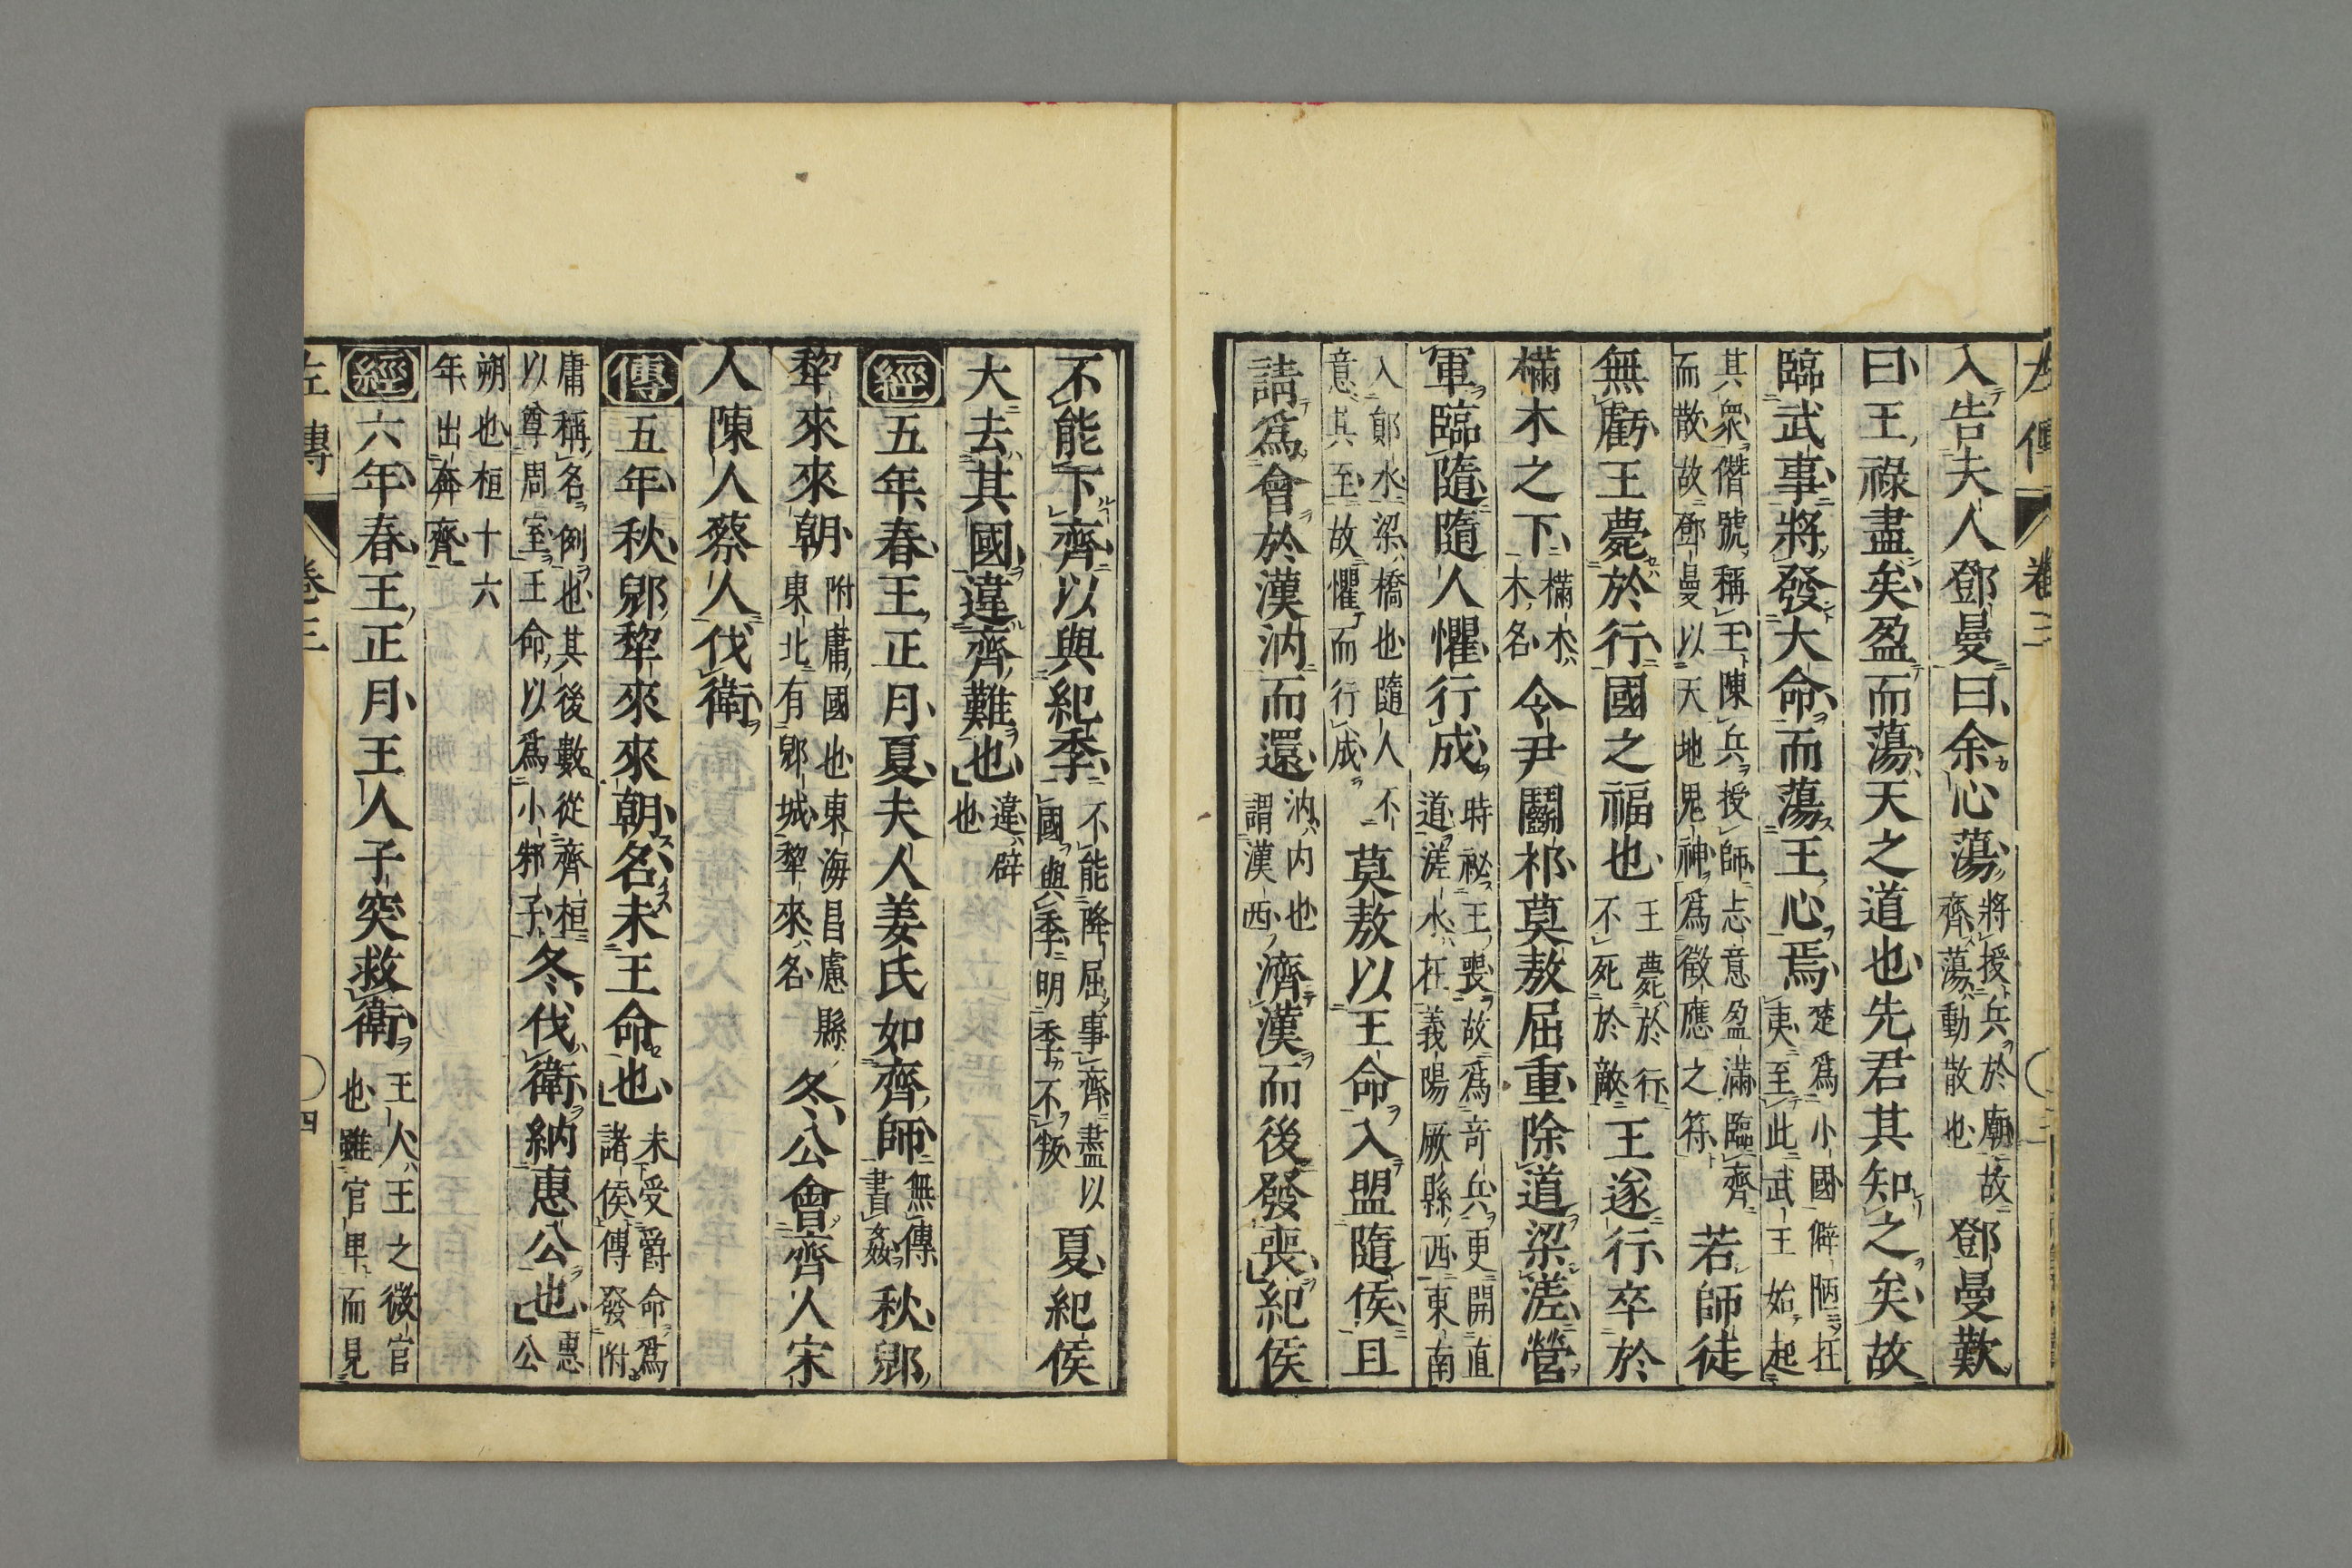 左傳 卷三
入告夫人鄧曼曰余心蕩將授兵於廟故齊蕩動散也鄧曼歎
曰王祿盡矣盈而蕩天之道也先君其知之矣故
臨武事將發大命而蕩王心焉楚爲小國僻陋在夷至此武王始起
其衆僭號稱王陳兵授師志意盈滿臨齊而散故鄧曼以天地鬼神爲徵應之符若師徒
無虧王薨於行國之福也王薨於行不死於敵王遂行卒於
樠木之下樠木木名令尹鬭祁莫敖屈重除道梁溠營
軍臨隨隨人懼行成時祕王喪故爲竒兵更開直道溠水在義陽厥縣西東南
入鄖水梁橋也隨人不意其至故懼而行成莫敖以王命入盟隨侯且
請爲會於漢汭而還汭内也謂漢西濟漢而後發喪紀侯
不能下齊以與紀季不能降屈事齊盡以國與季明季不叛夏紀侯
大去其國違齊難也違辟也
經五年春王正月夏夫人姜氏如齊師無傳書姦秋郳
犂來來朝附庸國也東海昌慮縣東北有郳城犂來名冬公會齊人宋
人陳人蔡人伐衛
傳五年秋郳犂來來朝名未王命也未受爵命爲諸侯傳發附
庸稱名例也其後數從齊桓以尊周室王命以爲小邾子冬伐衛納惠公也惠公
朔也桓十六年出奔齊
經六年春王正月王人子突救衛王人王之微官也雖官卑而見
左傳 卷三 四